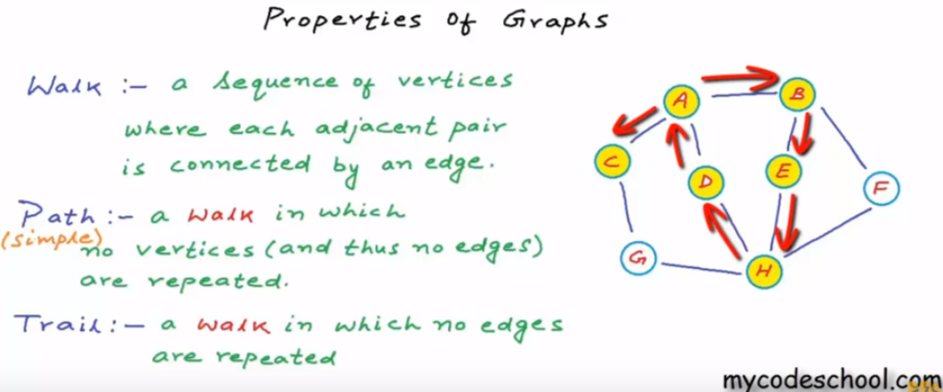 Properties of Graphs
Walk :- a sequence of vertices
where each adjacent pair
is connected by an edge.
Path :- a walk in which
(simple) no vertices (and thus no edges)
are repeated.
Trail :- a walk in which no edges
are repeated
A
B
C
D
E
F
G
H
mycodeschool.com